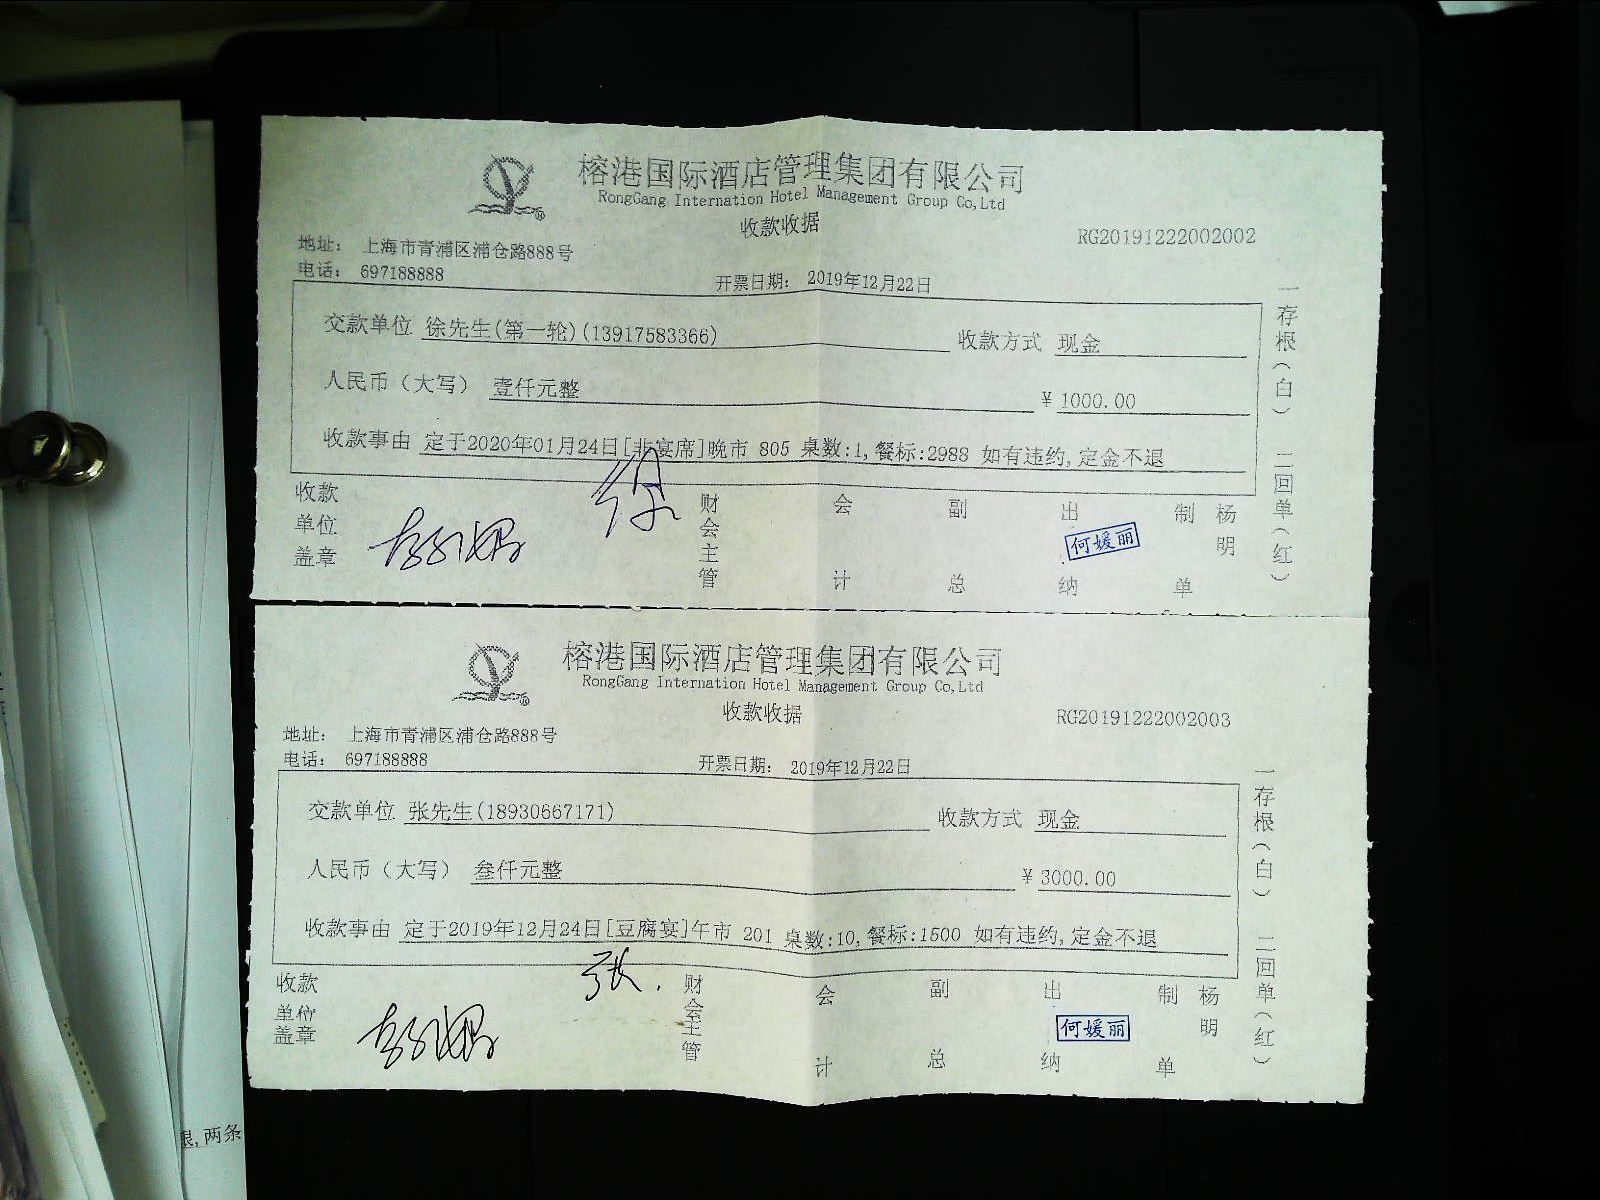 榕港国际酒店管理集团有限公司
RongGang Internation Hotel Management Group Co,Ltd
收款收据
RG20191222002002
地址： 上海市青浦区浦仓路888号
电话： 697188888
开票日期： 2019年12月22日
交款单位 徐先生(第一轮)(13917583366) 收款方式 现金
人民币（大写） 壹仟元整 ¥ 1000.00
收款事由 定于2020年01月24日[非宴席]晚市 805 桌数:1,餐标:2988 如有违约,定金不退
收款单位盖章
徐
财会主管
会计
副总
出纳
何媛丽
制单
杨明
一存根（白） 二回单（红）
榕港国际酒店管理集团有限公司
RongGang Internation Hotel Management Group Co,Ltd
收款收据
RG20191222002003
地址： 上海市青浦区浦仓路888号
电话： 697188888
开票日期： 2019年12月22日
交款单位 张先生(18930667171) 收款方式 现金
人民币（大写） 叁仟元整 ¥ 3000.00
收款事由 定于2019年12月24日[豆腐宴]午市 201 桌数:10,餐标:1500 如有违约,定金不退
收款单位盖章
张.
财会主管
会计
副总
出纳
何媛丽
制单
杨明
一存根（白） 二回单（红）
限,两条